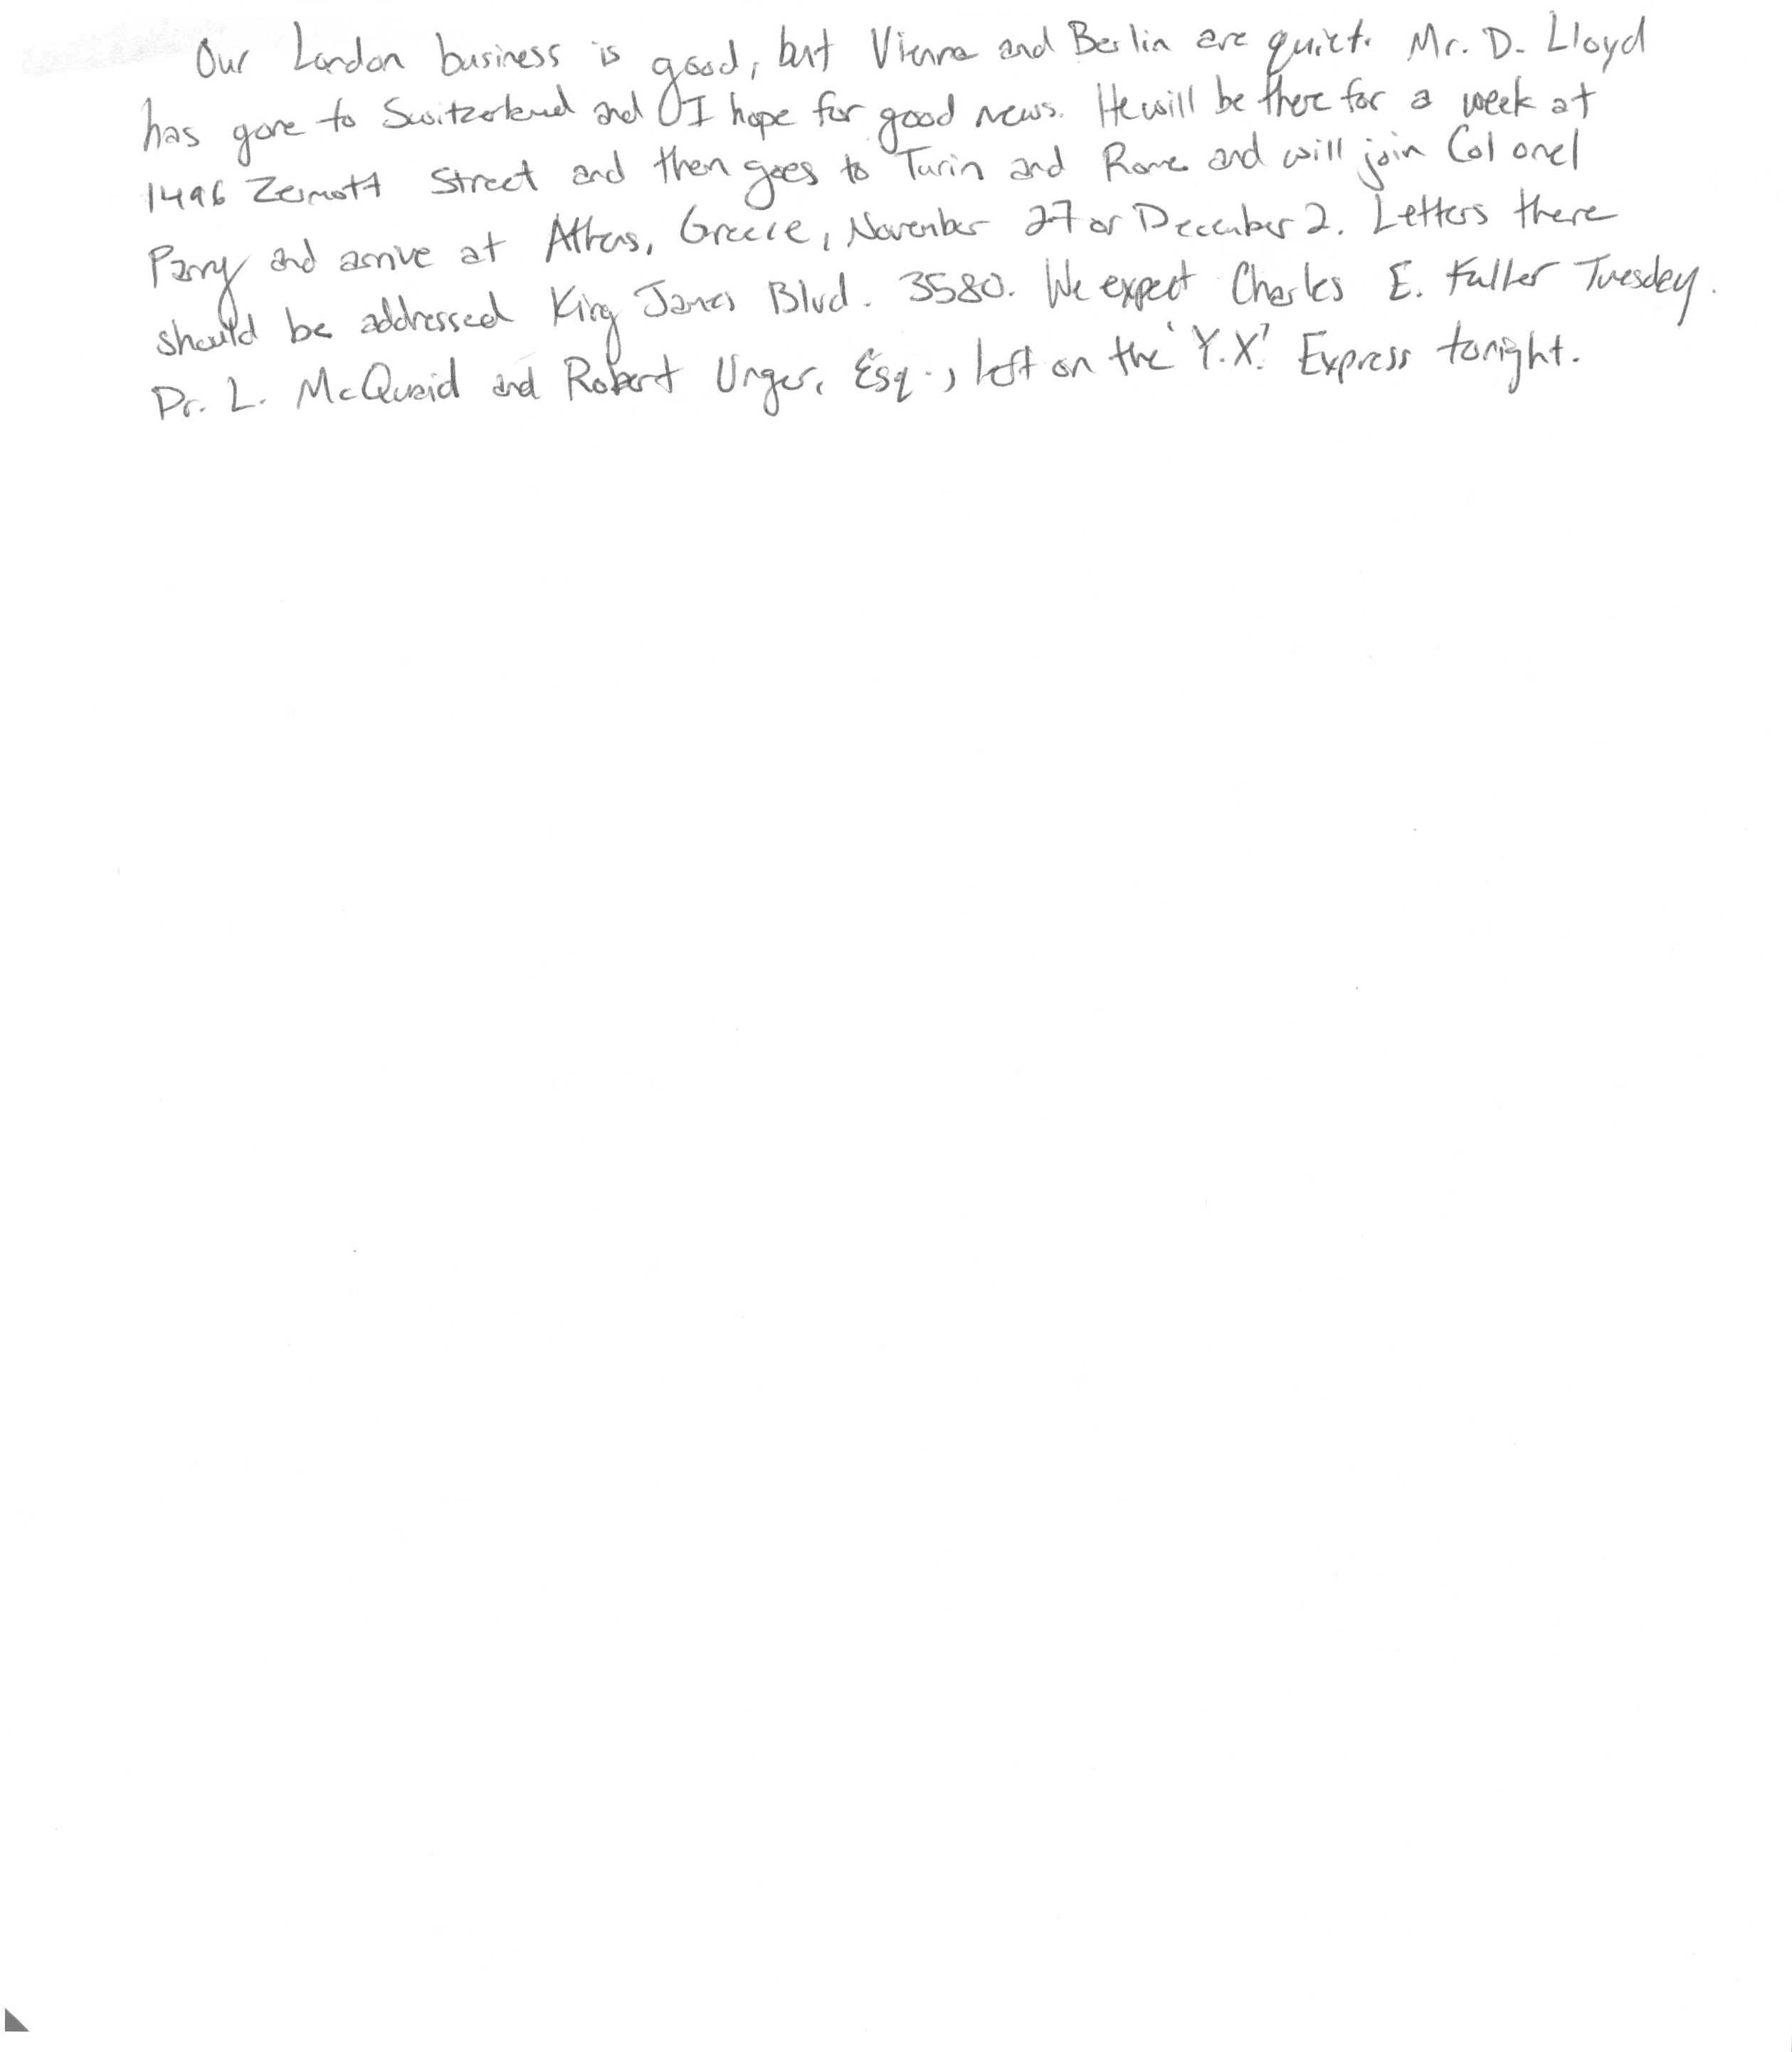 Our London business is good, but Vienna and Berlin are quiet. Mr. D. Lloyd
has gone to Switzerland and I hope for good news. He will be there for a week at
1496 Zermott Street and then goes to Turin and Rome and will join Colonel
Parry and arrive at Athens, Greece, November 27 or December 2. Letters there
should be addressed King James Blvd. 3580. We expect Charles E. Fuller Tuesday.
Dr. L. McQuaid and Robert Unger, Esq., left on the 'Y.X.' Express tonight.